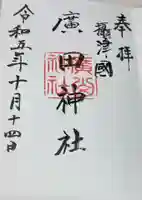 奉拝
摂津之國
廣田神社
令和五年十月十四日